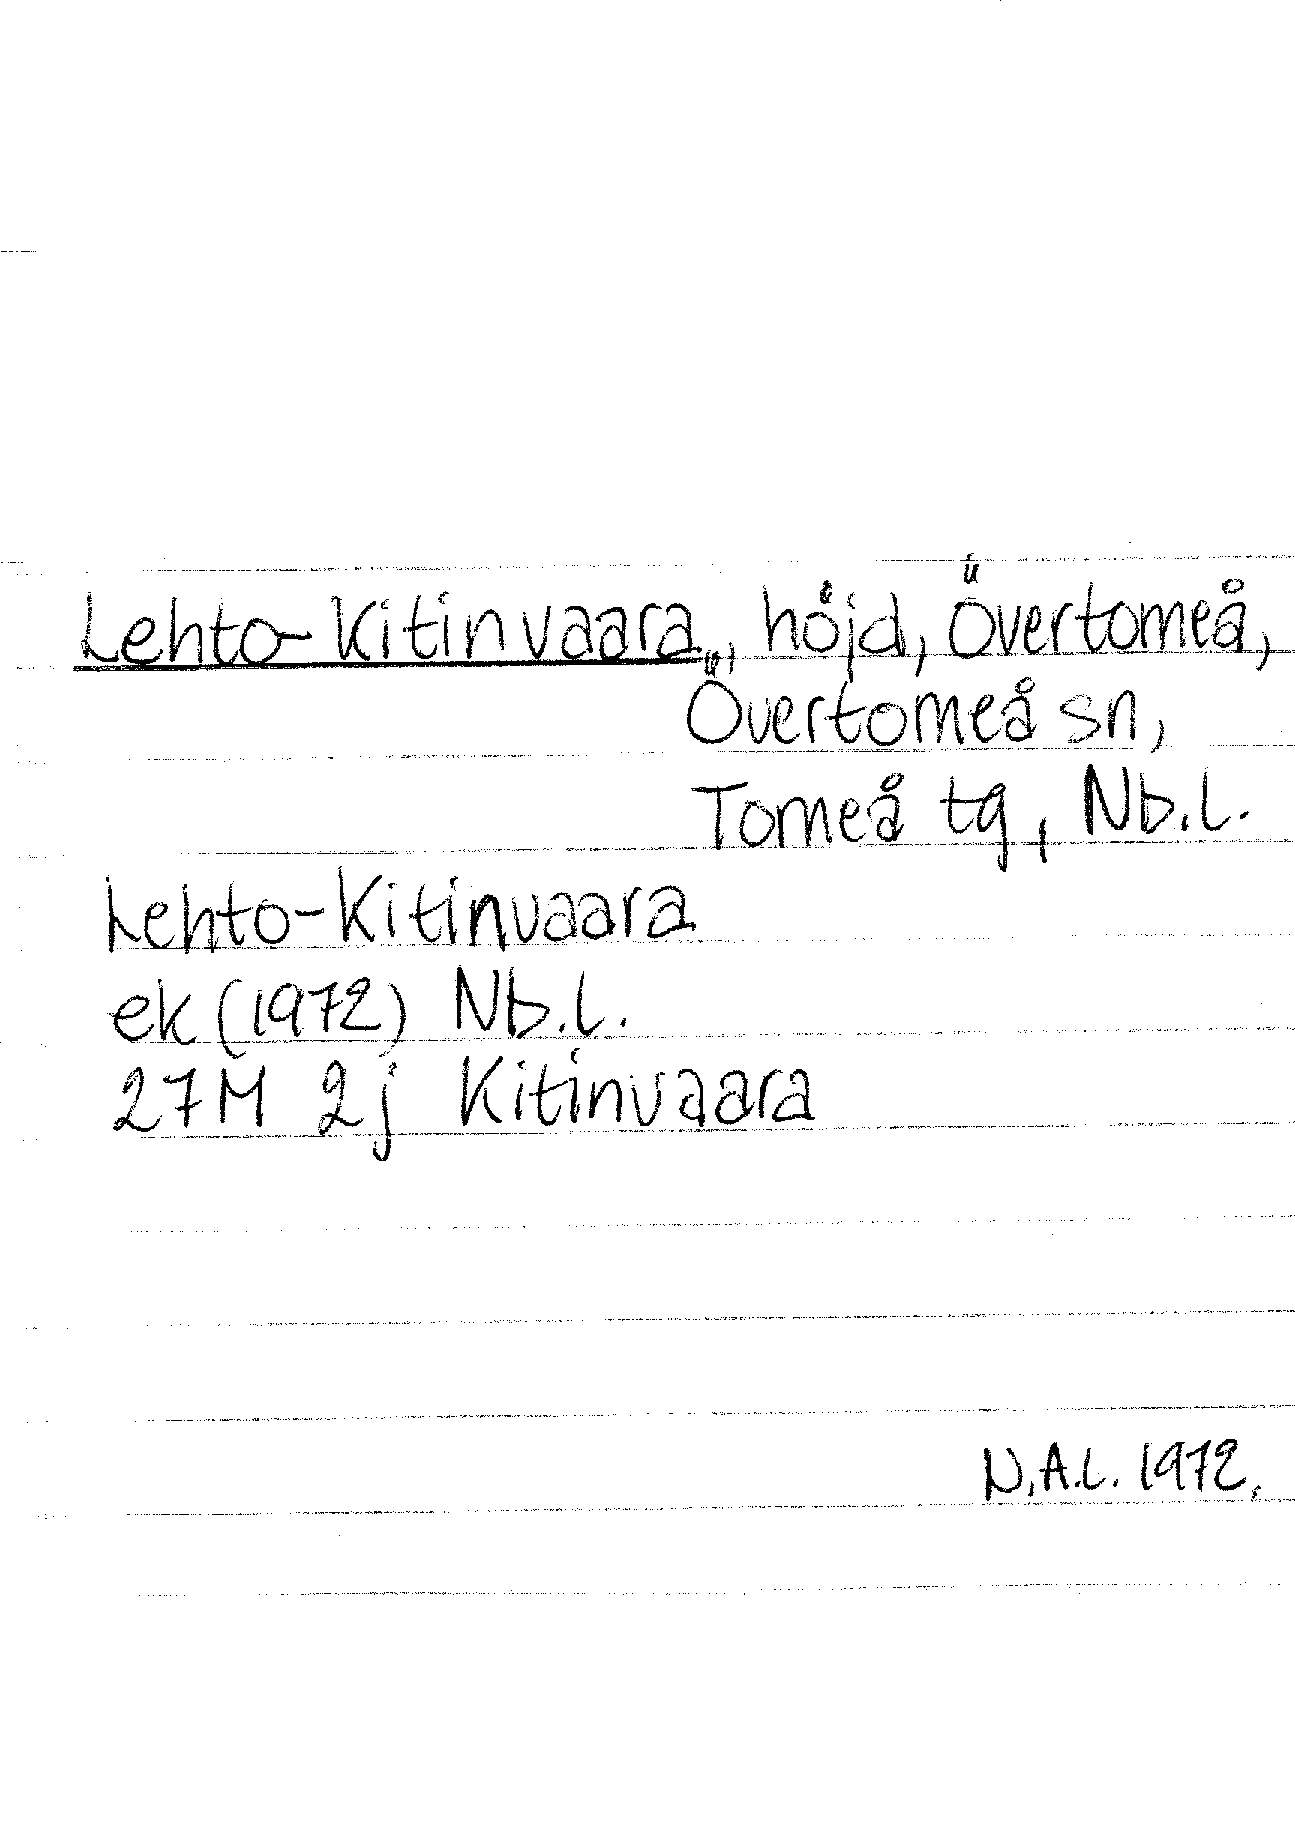 Lehto-Kitinvaara, höjd, Övertorneå,
Övertorneå sn,
Torneå tg, Nb.l.
Lehto-Kitinvaara
ek (1972) Nb.l.
27M 2j Kitinvaara
N.A.L. 1972.